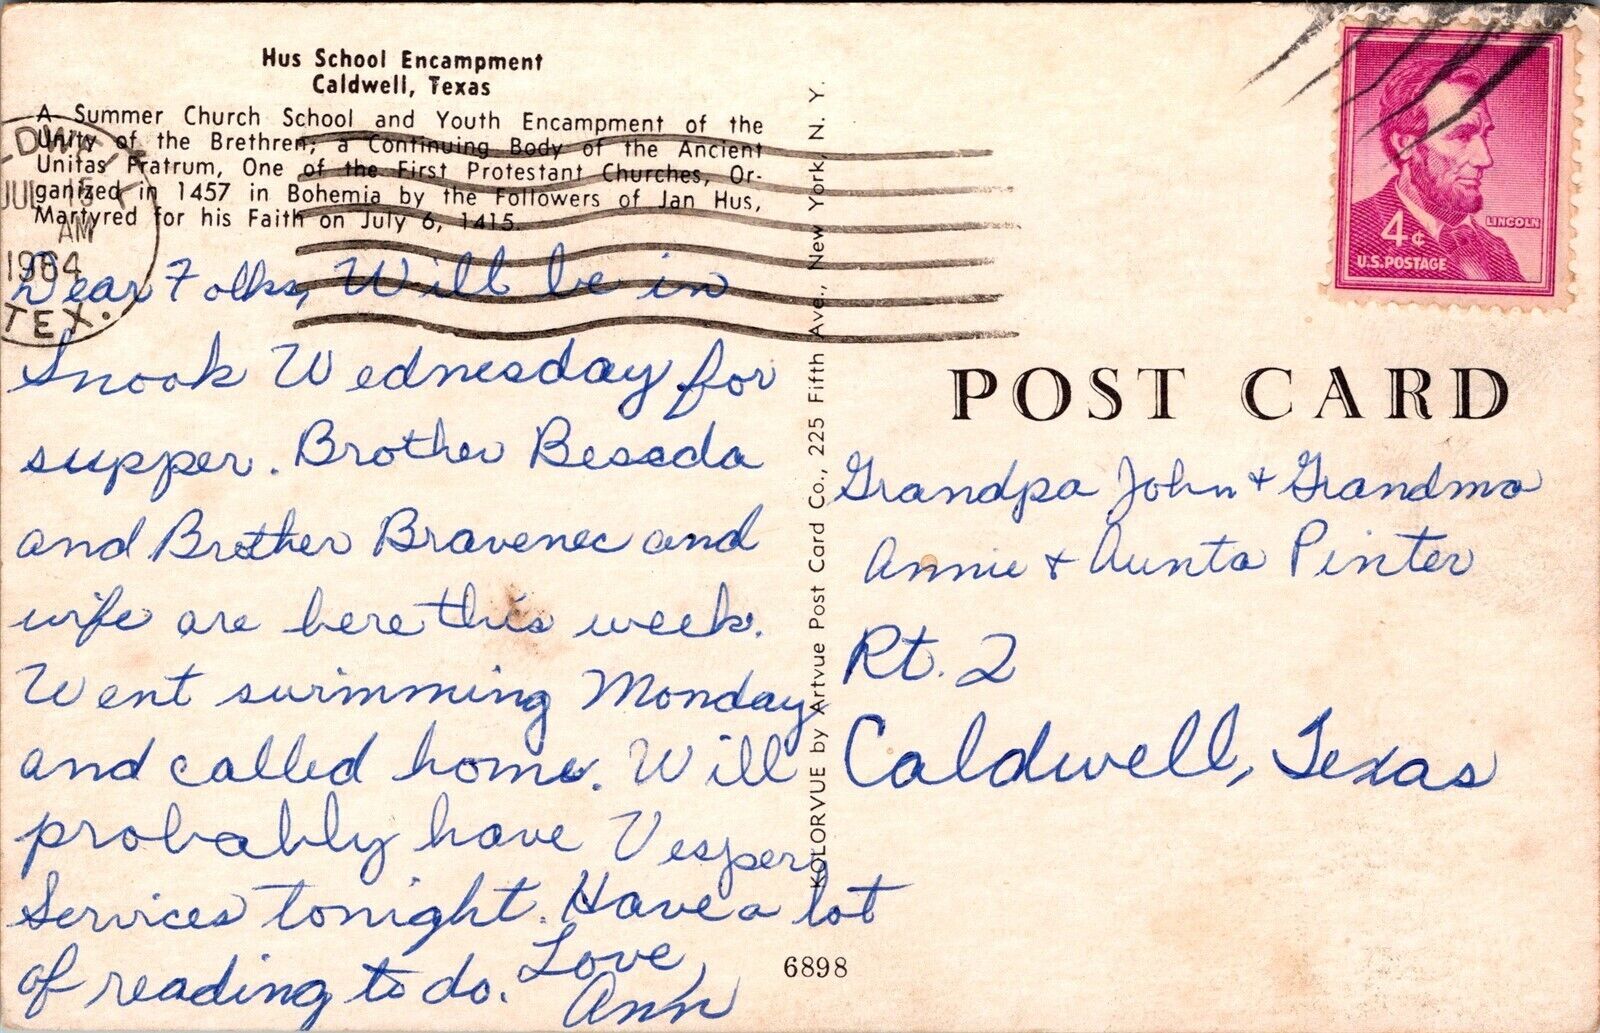 Hus School Encampment
Caldwell, Texas
A Summer Church School and Youth Encampment of the
Unity of the Brethren; a Continuing Body of the Ancient
Unitas Fratrum, One of the First Protestant Churches, Or-
ganized in 1457 in Bohemia by the Followers of Jan Hus,
Martyred for his Faith on July 6, 1415.
JUL 15
AM
1964
TEX.
Dear Folks, Will be in
Snook Wednesday for
supper. Brother Beseda
and Brother Bravenec and
wife are here this week.
Went swimming Monday
and called home. Will
probably have Vesper
Services tonight. Have a lot
of reading to do. Love,
Ann
KOLORVUE by Artvue Post Card Co., 225 Fifth Ave., New York, N. Y.
6898
4¢
LINCOLN
U.S. POSTAGE
POST CARD
Grandpa John + Grandma
Annie + Aunta Pinter
Rt. 2
Caldwell, Texas